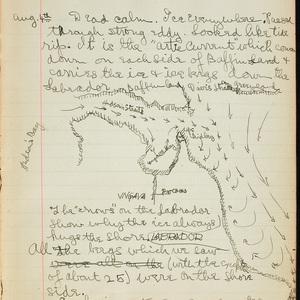 Aug. 4th Dead calm. Ice Everywhere. Passed
through strong eddy. Looked like tide
rip. It is the "Artic Current" which comes
down on each side of Baffin Land &
carries the ice & ice bergs down the
Labrador
Baffin Land
Davis Strait
Greenland
Hudson Strait
Hudson's Bay
UNGAVA
The "arrows" on the Labrador
show why the ice always
hugs the shore. LABRADOR
All the bergs which we saw
(with the
of about 25) were on the shore
side.